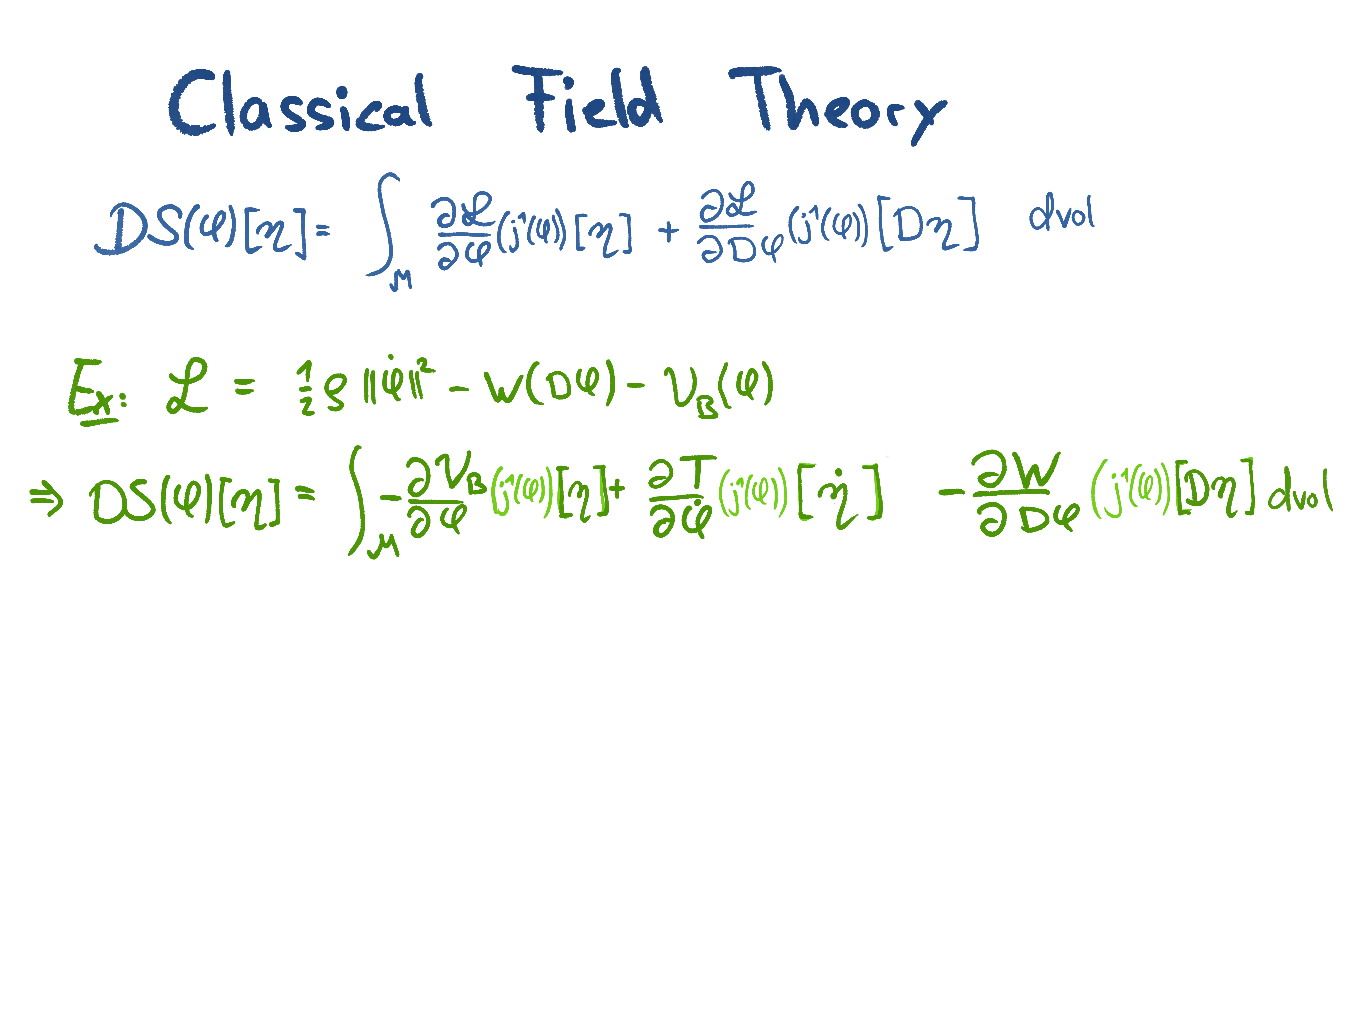 Classical Field Theory
DS(φ)[η] = ∫_M ∂ℒ/∂φ (j¹(φ))[η] + ∂ℒ/∂Dφ (j¹(φ))[Dη] dvol
Ex: ℒ = 1/2 ρ ||φ̇||² - W(Dφ) - V_B(φ)
⇒ DS(φ)[η] = ∫_M -∂V_B/∂φ (j¹(φ))[η] + ∂T/∂φ̇ (j¹(φ))[η̇] - ∂W/∂Dφ (j¹(φ))[Dη] dvol